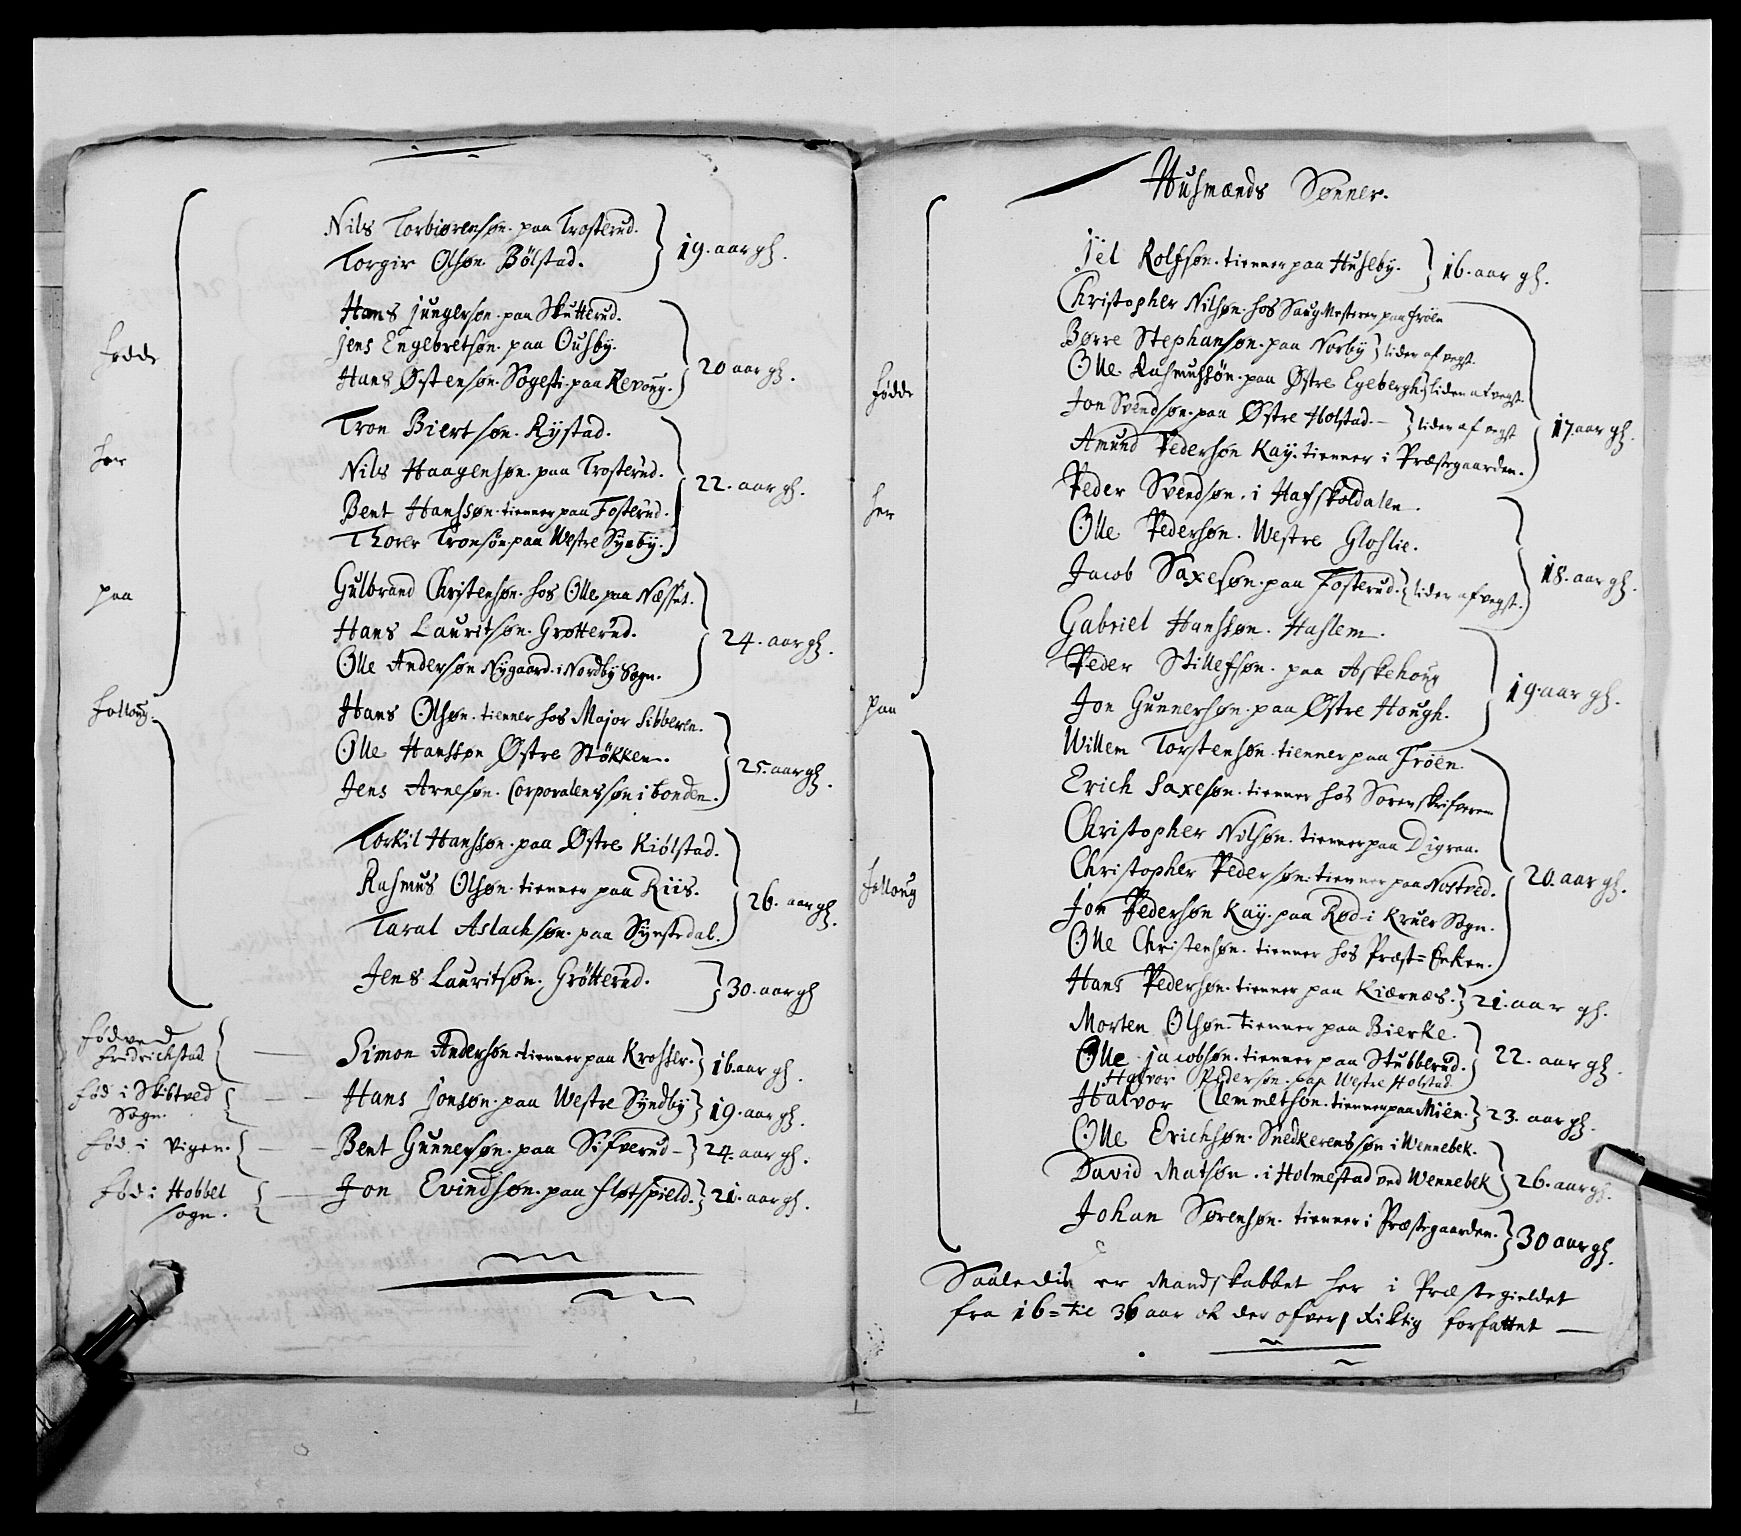 Nils Torbiørensøn paa Trosterud.
Torgir Olsøn Bölstad. } 19. aar gl.
Hans Jungersøn paa Skutterud.
Jens Engebretsøn paa Ousby.
fødde
Hans Østensøn Sogesti paa Revoug. } 20 aar gl.
Tron Biertsøn Rystad.
her
Nils Haagensøn paa Trosterud.
Bent Hanssøn tienner paa Fosterud. } 22. aar gl.
Thorer Tronsøn paa Westre Synby.
paa
Gulbrand Christensøn hos Olle paa Næsset.
Hans Lauritsøn Grøtterud. } 24. aar gl.
Olle Andersøn Nygaard i Nordby Sogn.
follong
Hans Olsøn tienner hos Major Sibberen.
Olle Hanssøn Østre Støkken. } 25. aar gl.
Jens Arnesøn Corporalens søn i bonden.
Torkil Hanssøn paa Østre Kiölstad.
Rasmus Olsøn tienner paa Riis. } 26. aar gl.
Taral Aslachsøn paa Synstedal.
Jens Lauritsøn Grötterud. } 30. aar gl
Fød ved
Fridrichstad { — Simon Andersøn tienner paa Kroster. } 16. aar gl.
Fød i Skibtved
Sogn. { — Hans Jonsøn paa Westre Syndby } 19. aar gl.
Fød i Vigen. { — Bent Gunnersøn paa Sifverud – } 24. aar gl.
Fød i Hobbel
sogn. { — Jon Evindsøn paa fløtspield. } 21. aar gl.
Husmænds Sønner.
Jel Rolfsøn tienner paa Husleby. } 16. aar gl.
Christopher Nilsøn hos Saug Mesteren paa frøen
Børre Stephansøn paa Norby } liden af vegt.
fødde
Olle Rasmussøn paa Østre Egebergh } liden af vegt.
Jon Svendsøn paa Østre Holstad. – } liden af vegt } 17. aar gl.
Amund Pedersøn Kay tienner i Præstegaarden.
Peder Svendsøn i Hafskoldalen.
her
Olle Pedersøn Westre Gloslie.
Jacob Saxesøn paa Fosterud. } liden af vegt. } 18. aar gl.
Gabriel Hanssøn Haslem.
Peder Stillefsøn paa Askehoug
paa
Jon Gunnersøn paa Østre Hough. } 19. aar gl.
Willem Torstensøn tienner paa Frøen.
Erich Saxesøn tienner hos Sorenskrifveren
Christopher Nilsøn tienner paa Digraa.
follong
Christopher Pedersøn tienner paa Nostved. } 20. aar gl.
Jon Pedersøn Kay paa Rød i Kruer Sogn.
Olle Christensøn tienner hos Præst=Enken.
Hans Pedersøn tienner paa Kiærnæs. } 21. aar gl.
Morten Olsøn tienner paa Bierke.
Olle Jacobsøn tienner paa Stubberud. } 22. aar gl.
Halvor Pedersøn paa Westre Holstad
Halvor Clemmetsøn tienner paa Mien. } 23. aar gl.
Olle Erichsøn Snedkerens søn i Wennebek.
David Matsøn i Holmestad ved Wennebek } 26. aar gl.
Johan Sørensøn tienner i Præstegaarden. } 30 aar gl.
Saaledis er Mandskabbet her i Præstegieldet
fra 16= til 36 aar ok der ofver, Riktig forfattet —